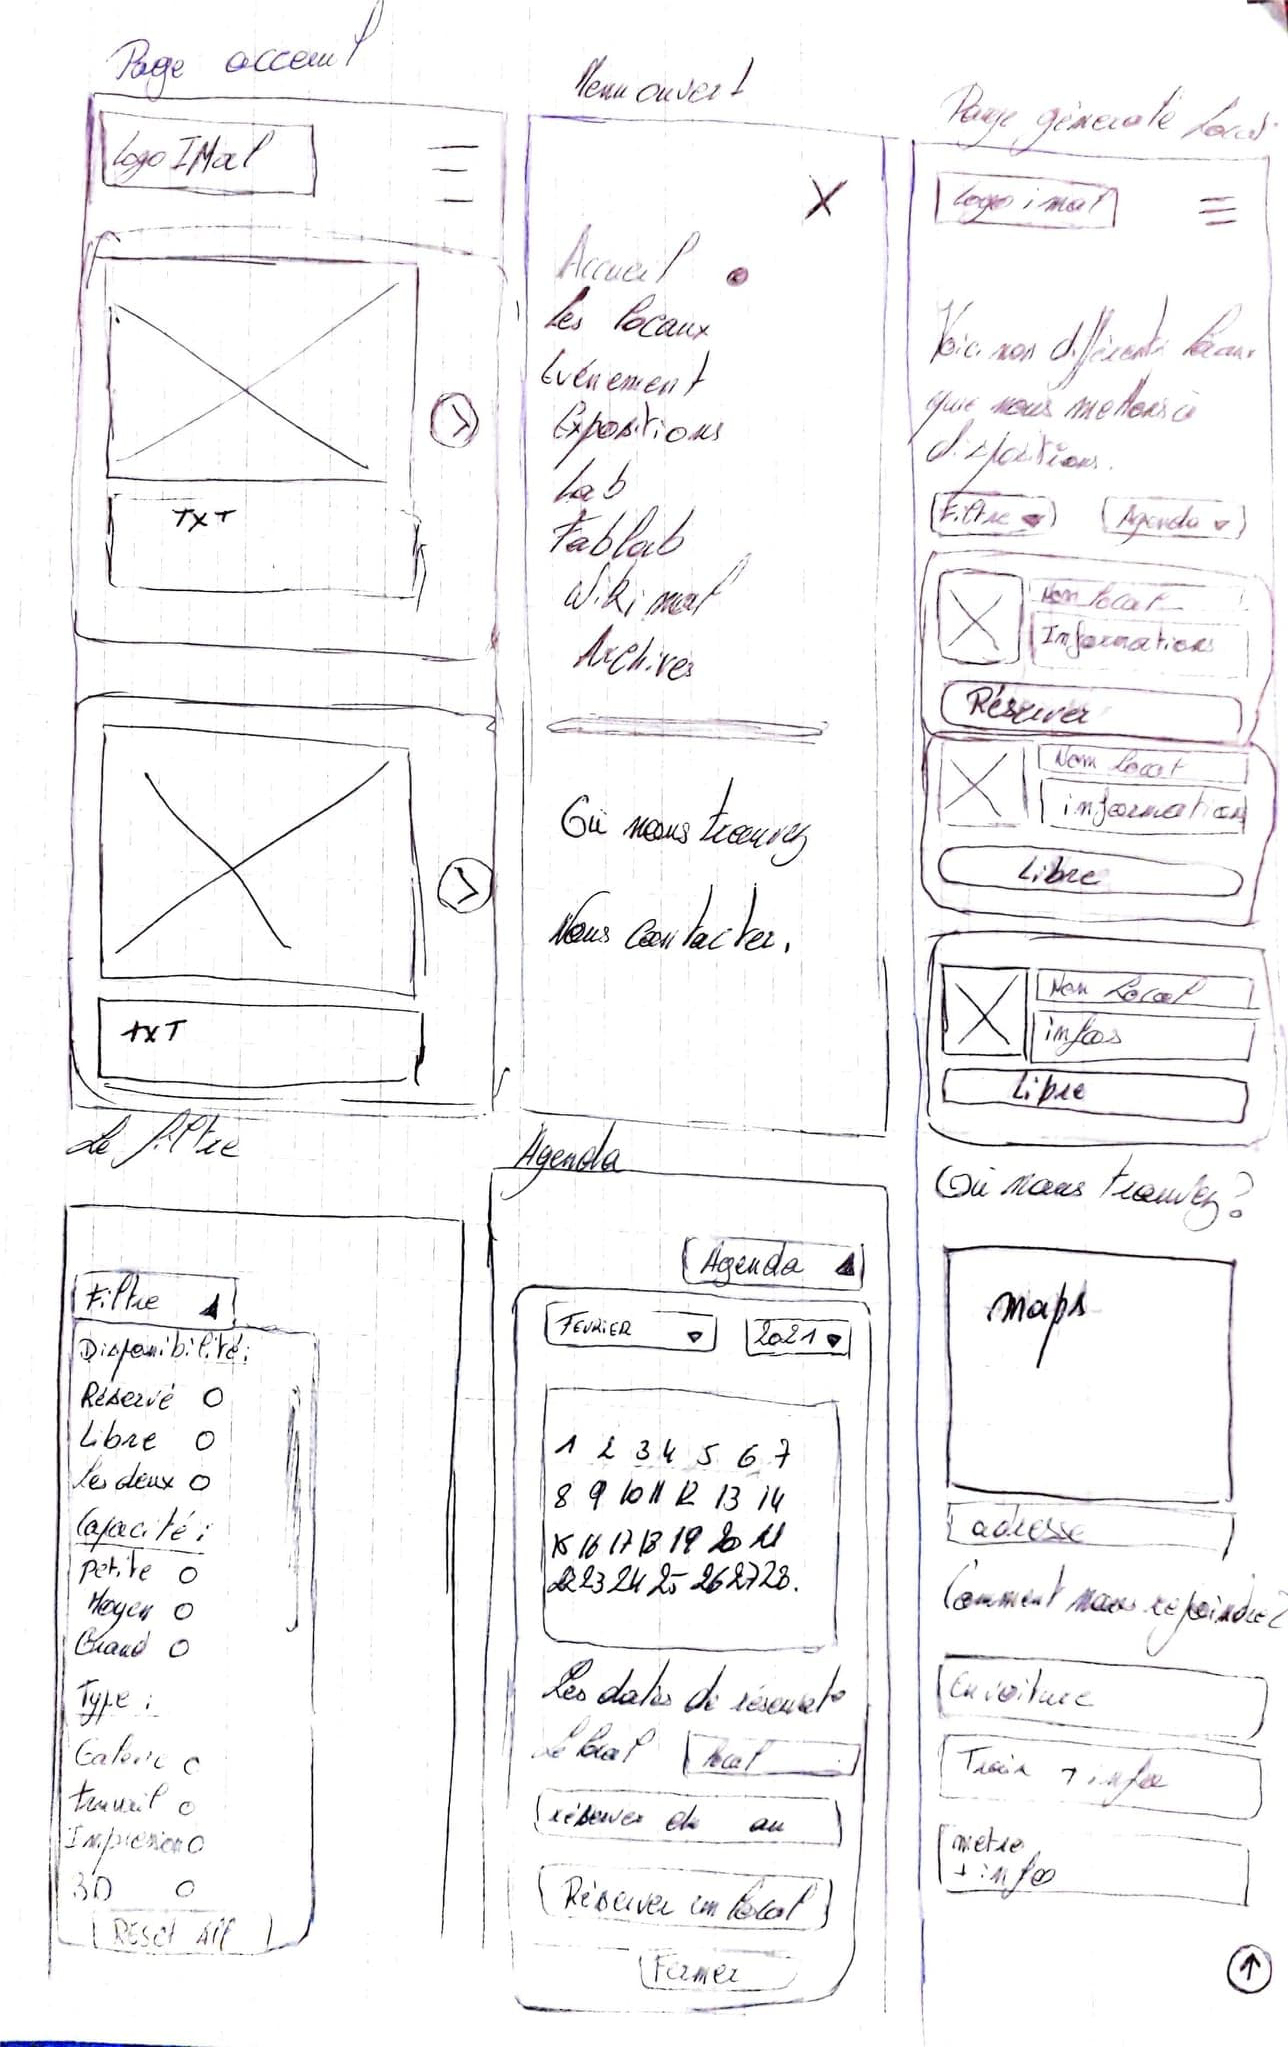 Page acceuil
Logo IMal
TXT
TXT
Menu ouvert
X
Accueil
Les locaux
Evénement
Expositions
Lab
Fablab
Wikimal
Archives
Où nous trouvez
Nous contacter.
Page générale Local
Logo imal
Voici nos différents locaux
que nous mettons à
dispositions.
Filtre
Agenda
Nom local
Informations
Réserver
Nom local
information
Libre
Nom Local
infos
Libre
Où nous trouvez?
maps
adresse
Comment nous rejoindre?
En voiture
Train + infos
metro
+ info
Le filtre
Filtre
Disponibilité:
Réservé
Libre
Les deux
Capacité:
Petite
Moyen
Grand
Type:
Galerie
travail
Impression
3D
Reset All
Agenda
Agenda
FEVRIER
2021
1 2 3 4 5 6 7
8 9 10 11 12 13 14
15 16 17 18 19 20 21
22 23 24 25 26 27 28.
Les dates de réservat°
Le local
local
réserver du au
Réserver un local
Fermer